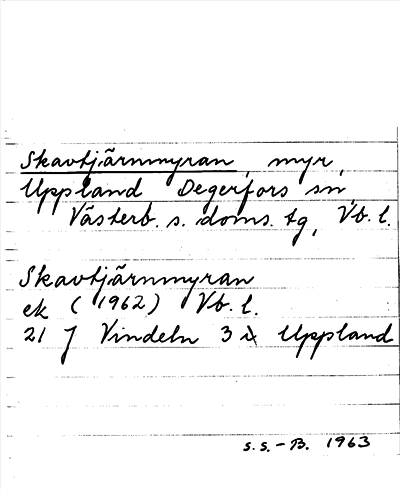 Skavtjärnmyran, myr,
Uppland Degerfors sn,
Västerb. s. doms. tg, Vb. l.
Skavtjärnmyran
ek (1962) Vb. l.
21 J Vindeln 3 i Uppland
s.s.-B. 1963